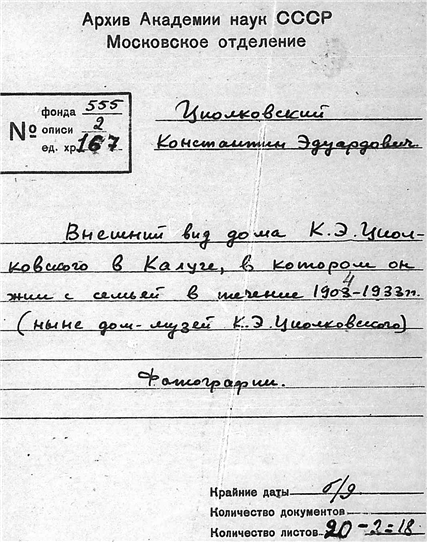 Архив Академии наук СССР
Московское отделение
№
фонда 555
описи 2
ед. хр. 167
Циолковский
Константин Эдуардович
Внешний вид дома К.Э.Циол-
ковского в Калуге, в котором он
жил с семьей в течение 1904-1933гг.
(ныне дом-музей К.Э.Циолковского)
Фотографии.
Крайние даты б/д
Количество документов
Количество листов 20-2=18